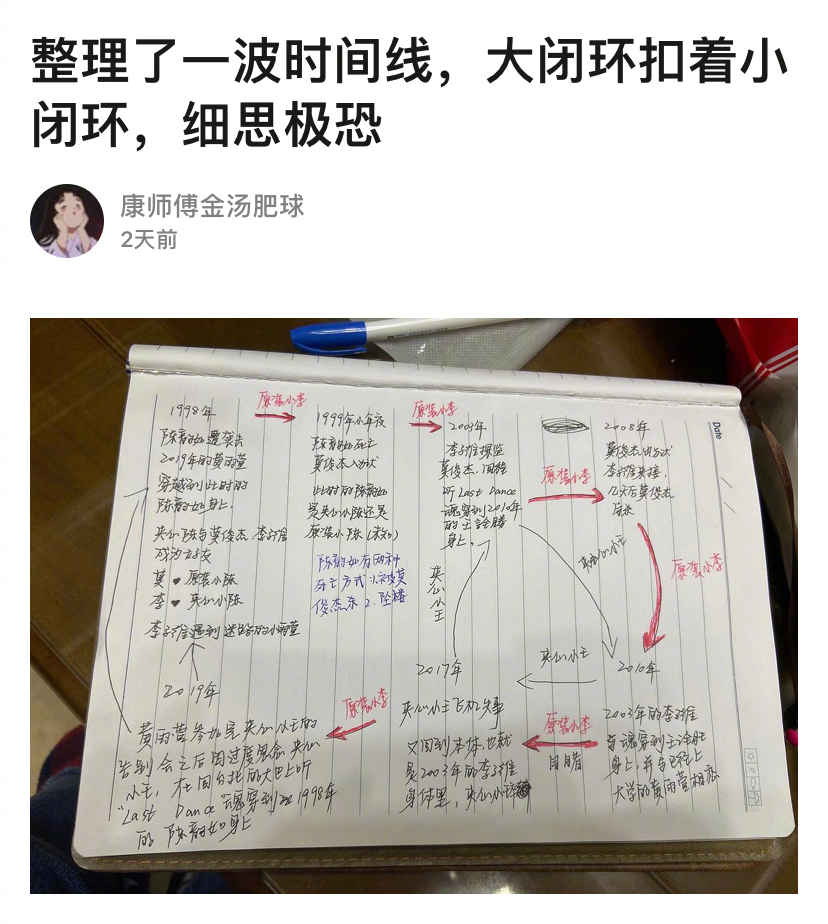 整理了一波时间线，大闭环扣着小
闭环，细思极恐
康师傅金汤肥球
2天前
1998年
陈韵如遭袭击
2019年的黄雨萱
穿越到此时的
陈韵如身上。
夹心小陈与莫俊杰 李子维
成为好友
莫 ♥ 原装小陈
李 ♥ 夹心小陈
李子维遇到迷路的小雨萱
原装小李
1999年小年夜
陈韵如死亡
莫俊杰入狱
此时的陈韵如
是夹心小陈还是
原装小陈（未知）
陈韵如有两种
死亡方式 1.被莫
俊杰杀 2.坠楼
原装小李
2003年
李子维探监
莫俊杰，回程
听 Last Dance
魂穿到2010年
的王诠胜
身上。
夹心小王
原装小李
2008年
莫俊杰出狱
李子维来接，
几天后莫俊杰
自杀
原装小李
夹心小王
2010年
2003年的李子维
魂穿到王诠胜
身上，并与已经上
大学的黄雨萱相恋
夹心小王
原装小李
2017年
夹心小王飞机失事
又回到本体，也就
是2003年的李子维
身体里，夹心小
原装小李
2019年
黄雨萱参加完夹心小王的
告别会之后因过度思念夹心
小王，在回台北的大巴上听
"Last Dance"魂穿到1998年
的 陈韵如身上
Date